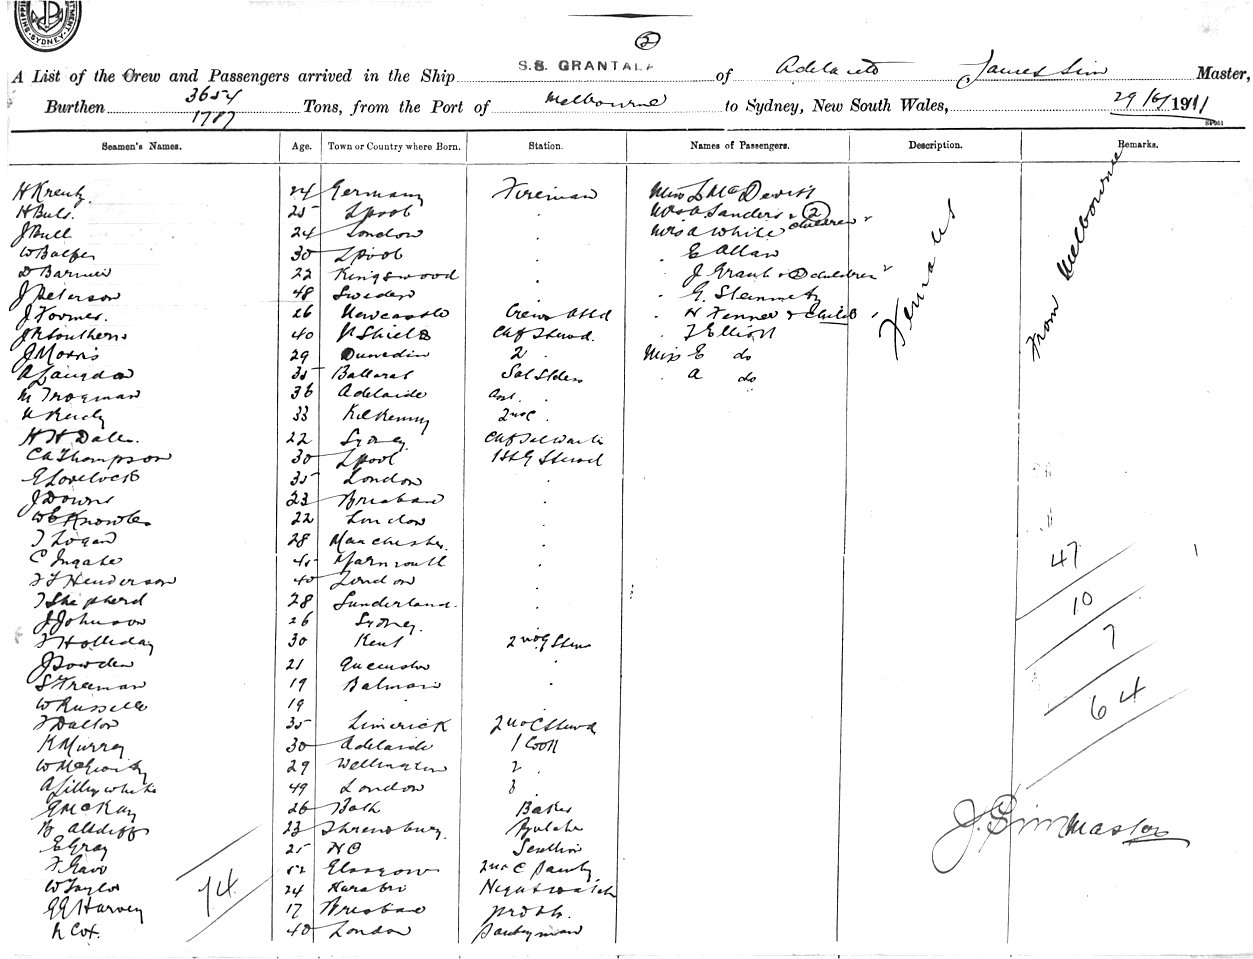 SYDNEY
5
A List of the Crew and Passengers arrived in the Ship S.S. GRANTALA of Adelaide James Sim Master,
Burthen 3654 1787 Tons, from the Port of Melbourne to Sydney, New South Wales, 29/6/1911
Seamen's Names. Age. Town or Country where Born. Station. Names of Passengers. Description. Remarks.
H Kreutz. 24 Germany Fireman Miss L McDevitt Females From Melbourne
H Buls. 25 Lpool . Mrs A Sanders & 2 children
J Bull 24 London . Mrs A White
W Balfer 30 Lpool . . E Allan
D Barnier 22 Kingswood . . J Grant & 2 children
J Peterson 48 Sweden . . G. Steinmetz
J Formes. 26 Newcastle Crews Attd . H Fenner & Child
J R Southerns 40 N Shields Chf Stewd. . J Elliott
J Morris 29 Dunedin 2 . Miss E do
A Langdon 35 Ballarat . A do
M Trogman 36 Adelaide Asst.
33 Kilkenny 2nd C.
H H Dale. 22 Sydney
C A Thompson 30 Lpool 1st G Stewd
E Lovelock 35 London .
J Downs 23 Brisbane .
W E Knowles 22 London .
J Logan 28 Manchester. .
C Ingate Yarmouth . 47
J J Henderson 40 London .
J Shepherd 28 Sunderland. . 10
J Johnson 26 Sydney. .
J Holliday 30 Kent 2nd G Stew 7
J Dowden 21 .
S Freeman 19 Balmain . 64
W Russell 19 .
J Dalton 35 Limerick 2nd C Stewd
K Murray 30 Adelaide 1 Cook
29 Wellington 2 .
A Lillywhite 49 London 3 .
G McKay 26 Bath Baker
23 Shrewsbury. Butcher J. Sim Master
E Gray 25 NC
52 Glasgow 2nd C Pantry
W Taylor 74 24 Nightwatch
G G Harvey 17 Brisbane
N Cox. 40 London Pantryman